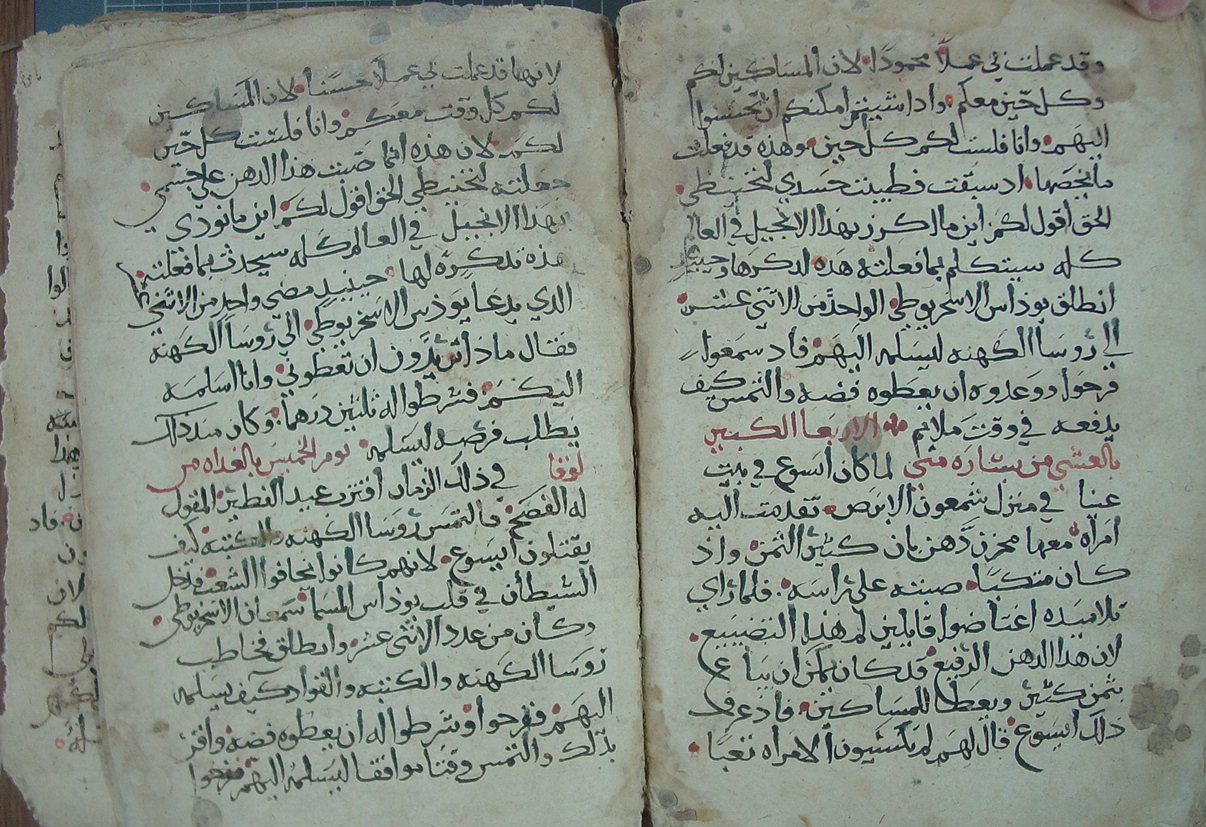 وقد عملت في عملاً محمودًا لان المساكين لكم
وكل حين معكم واذا شيتم امكنكم ان تحسنوا
اليهم وانا فلست لكم كل حين وهذه قد فعلت
ما يخصها اد سبقت فطيبت جسدي لتحنيطي
الحق اقول لكم اين ما لكرز بهدا الانجيل في العالم
كله سيتكلم بما فعلته هده لدكرها وحينيد
انطلق يوداس الاسخريوطي الواحد من الاثني عشر
الي روسا الكهنه ليسلمه اليهم فاد سمعوا
فرحوا ووعدوه ان يعطوه فضه والتمس كيف
يدفعه في وقت ملايم الاربعا الكبير
بالعشي من بشاره متي لما كان ايسوع في بيت
عنيا في منزل شمعون الابرص تقدمت اليه
امراه معها مخزن دهن بان كثير الثمن واد
كان متكيا صبته علي راسه فلما راي
تلاميده اغتاضوا قايلين لم هدا التضييع
لان هدا الدهن الرفيع قد كان يمكن ان يباع
بثمن كثير ويعطا للمساكين فاد عرف
دلك ايسوع قال لهم لم تكسبون الامراه تعبا
لانها قد عملت بي عملاً حسنا لان المساكين
لكم كل وقت معكم وانا فلست كل حين
لكم لان هذه انما صبت هذا الدهن علي جسمي
جعلته لتحنيطي الحق اقول لكم اين ما نودي
بهذا الانجيل في العالم كله سيحدث بما فعلته
هذه تدكره لها حينيد مضي واحد من الاثني
الذي يدعا يوذس الاسخريوطي الي روسا الكهنه
فقال ماذا تريدون ان تعطوني وانا اسلمه
اليكم فشرطوا له ثلثين درهما وكان مند داك
يطلب فرصه ليسلمه يوم الخميس بالغداه من
لوقا في ذلك الزمان اقترب عيد الفطير المقول
له الفصح والتمس روسا الكهنه والكتبه كيف
يقتلون ايسوع لانهم كانوا يخافوا الشعب فدخل
الشيطان في قلب يوذاس المسما سمعان الاسخريوطي
وكان من عدد الاثني عشر وانطلق فخاطب
روسا الكهنه والكتبه والقواد كيف يسلمه
اليهم ففرحوا وشرطوا له ان يعطوه فضه واقر
بذلك والتمس وقتا موافقا ليسلمه اليهم